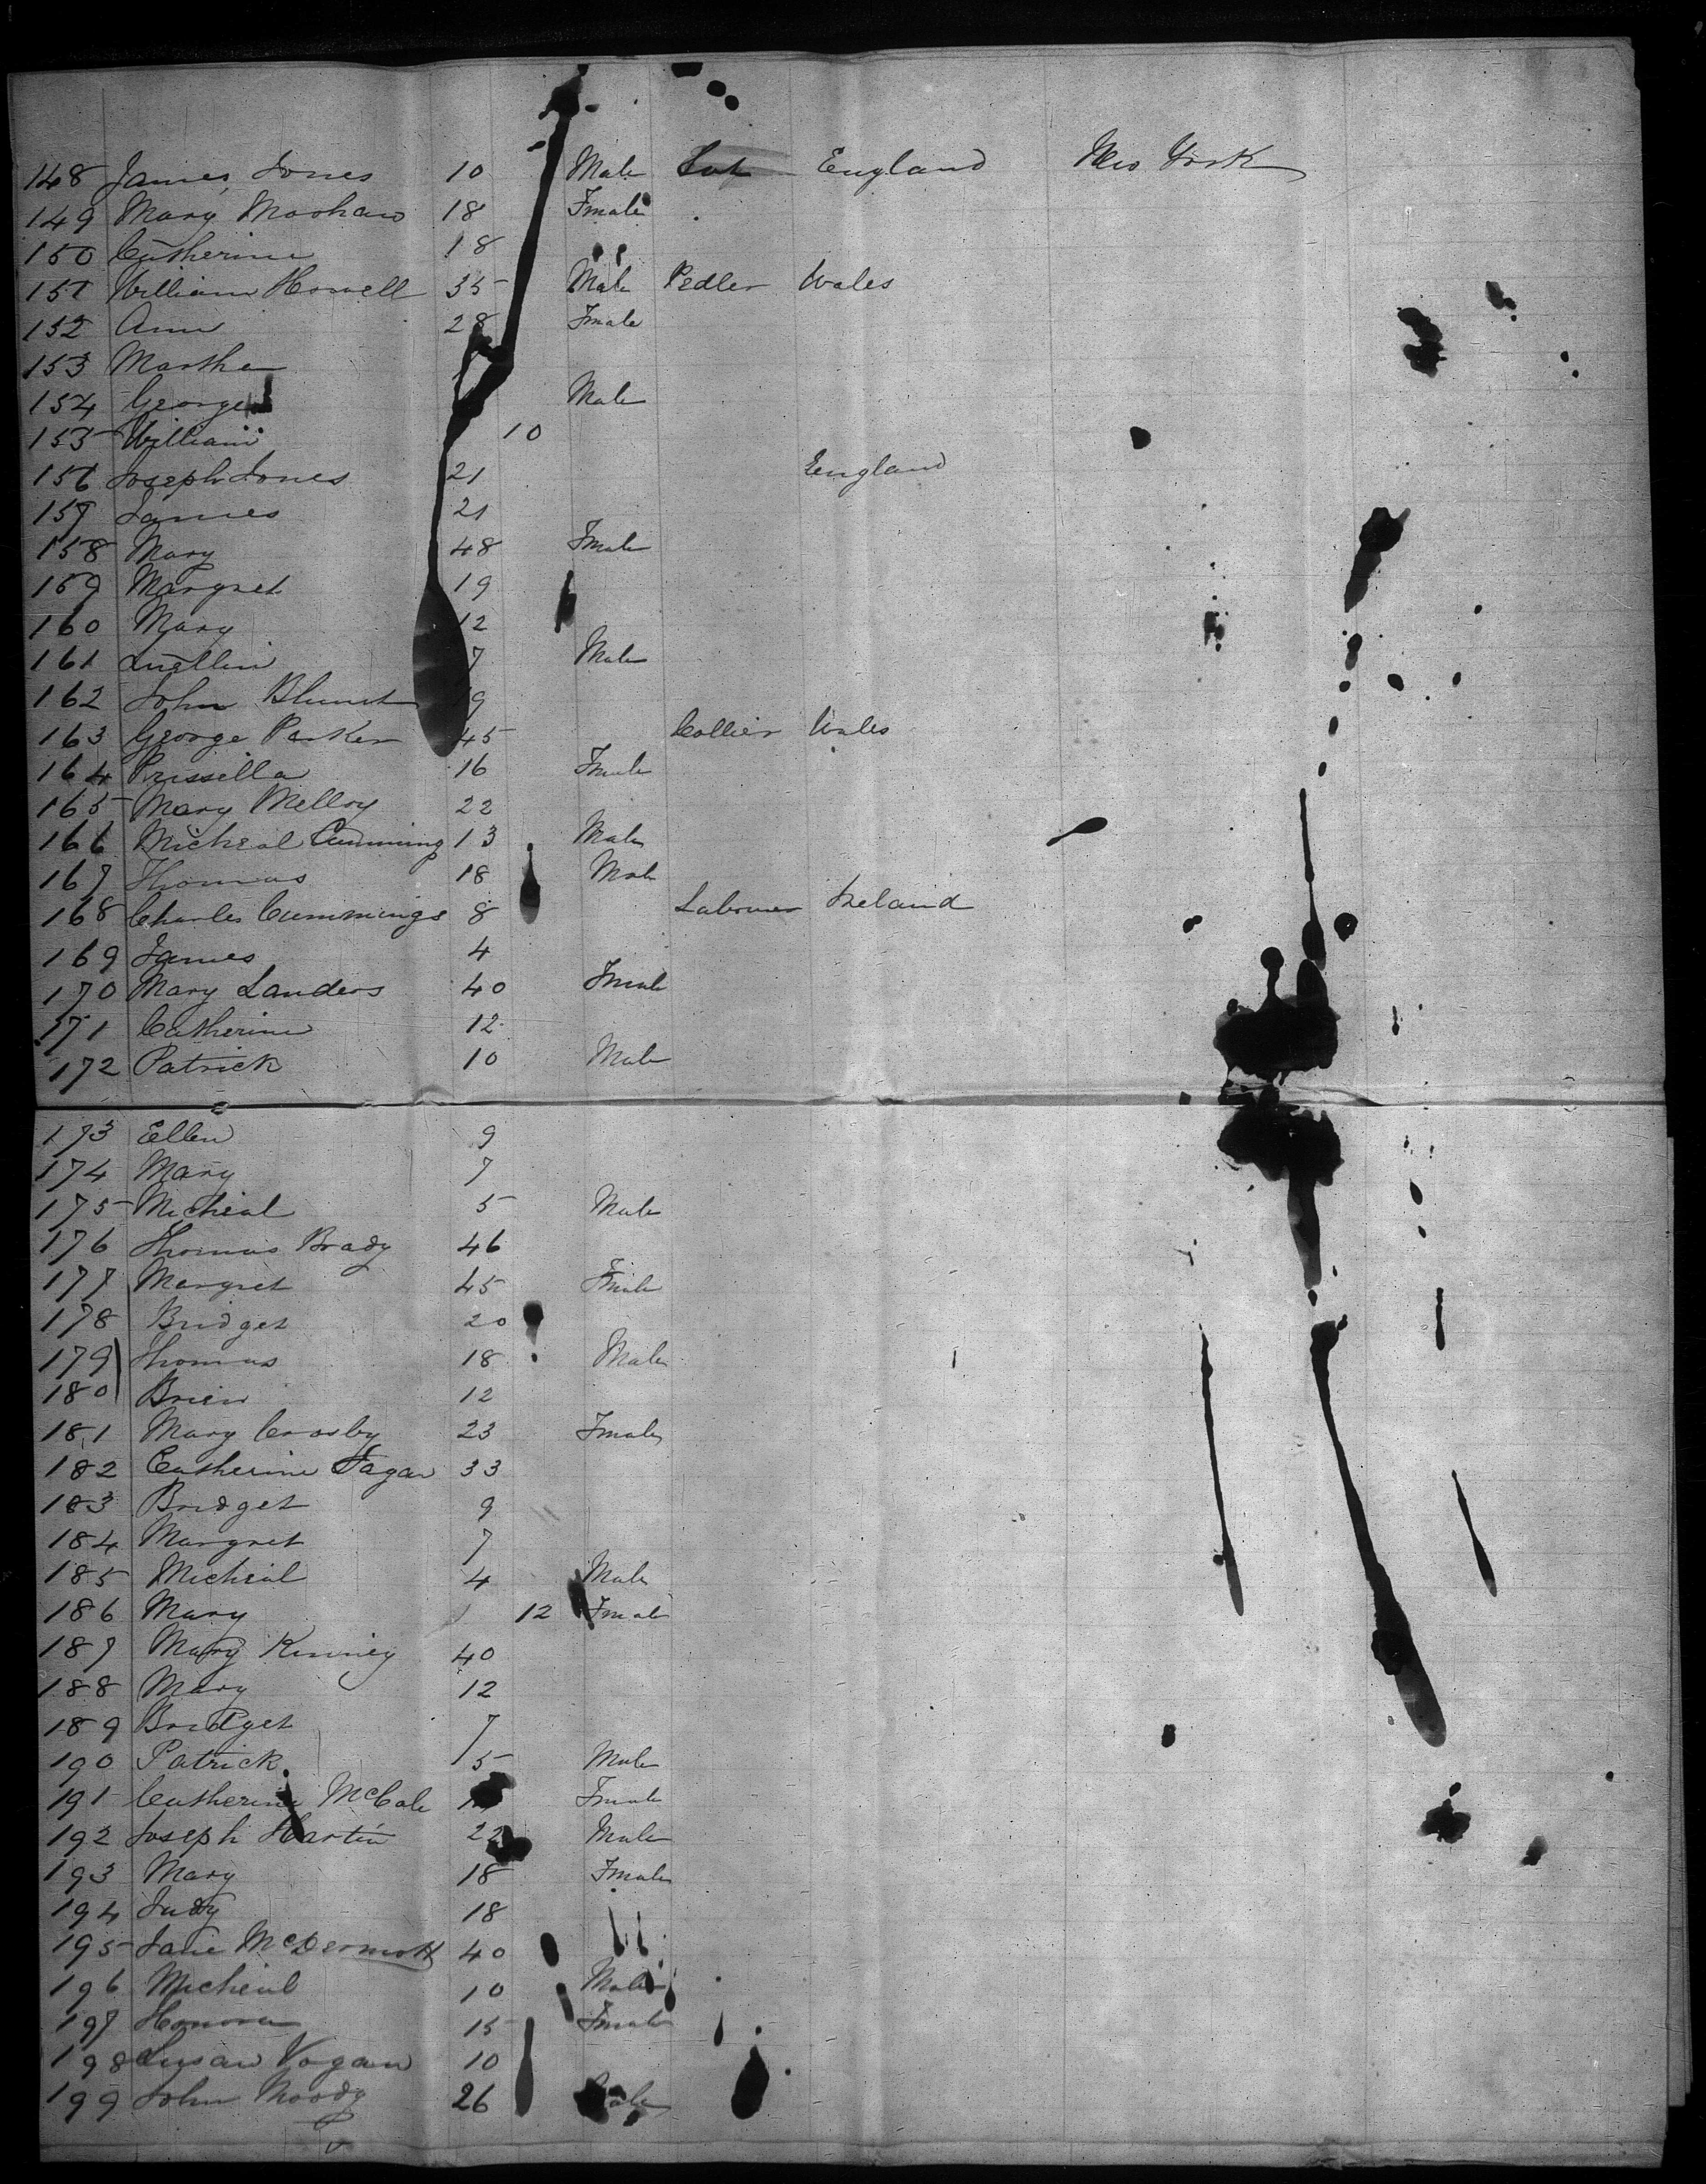 148 James Jones 10 Male England New York
149 Mary 18 Fmale
150 Catherine 18
151 William Howell 35 Male Pedler Wales
152 Ann 28 Fmale
153 Martha
154 George Male
155 William 10
156 Joseph Jones 21 England
157 James 21
158 Mary 48 Fmale
159 Margret 19
160 Mary 12
161 7 Male
162 John Blunt 9
163 George Parker 45 Collier Wales
164 Prissilla 16 Fmale
165 Mary Melloy 22
166 Micheal Cumming 13 Male
167 Thomas 18 Male
168 Charles Cummings 8 Labourer Ireland
169 James 4
170 Mary Landers 40 Fmale
171 Catherine 12
172 Patrick 10 Male
173 Ellen 9
174 Mary 7
175 Micheal 5 Male
176 Thomas Brady 46
177 Margret 45 Fmale
178 Bridget 20
179 Thomas 18 Male
180 Brien 12
181 Mary Crosby 23 Fmale
182 Catherine Fagan 33
183 Bridget 9
184 Margret 7
185 Micheal 4 Male
186 Mary 12 Fmale
187 Mary Kinney 40
188 Mary 12
189 Bridget 7
190 Patrick 5 Male
191 Catherine McCale Fmale
192 Joseph Hartin 22 Male
193 Mary 18 Fmale
194 Judy 18
195 Jane McDermott 40
196 Micheal 10 Male
197 Honora 15 Fmale
198 Susan Vogan 10
199 John Moody 26 Male